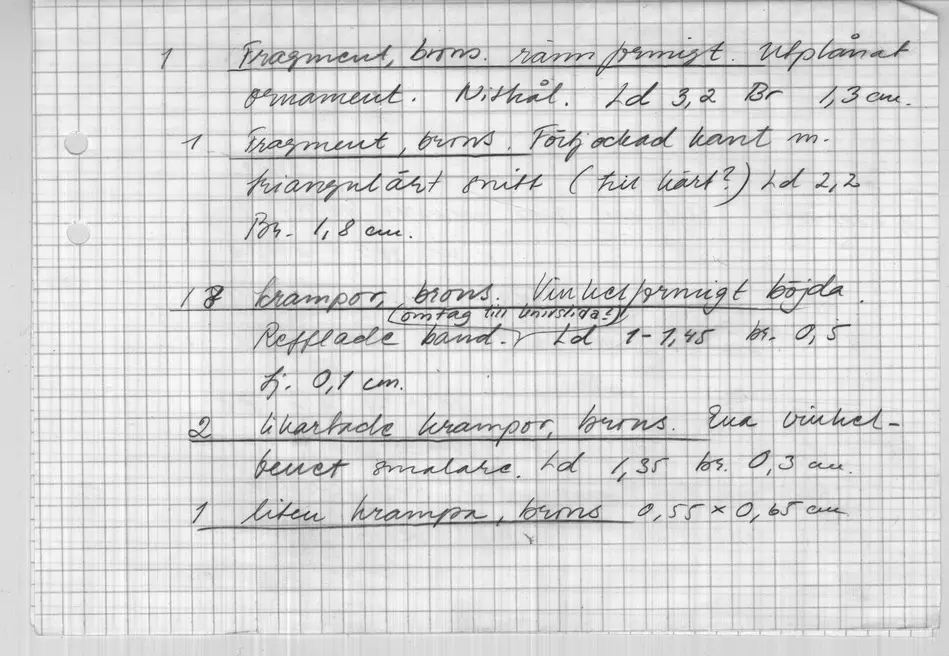 1 Fragment, brons. rännformigt. Utplånat
ornament. Nithål. Ld 3,2 Br 1,3 cm.
1 Fragment, brons. Förtjockad kant m.
triangulärt snitt (till kärl?) Ld 2,2
Br. 1,8 cm.
18 krampor, brons. Vinkelformigt böjda.
(omtag till knivslida?)
Refflade band. Ld 1-1,45 br. 0,5
tj. 0,1 cm.
2 likartade krampor, brons. Ena vinkel-
benet smalare. Ld 1,35 br. 0,3 cm.
1 liten krampa, brons 0,55 × 0,65 cm